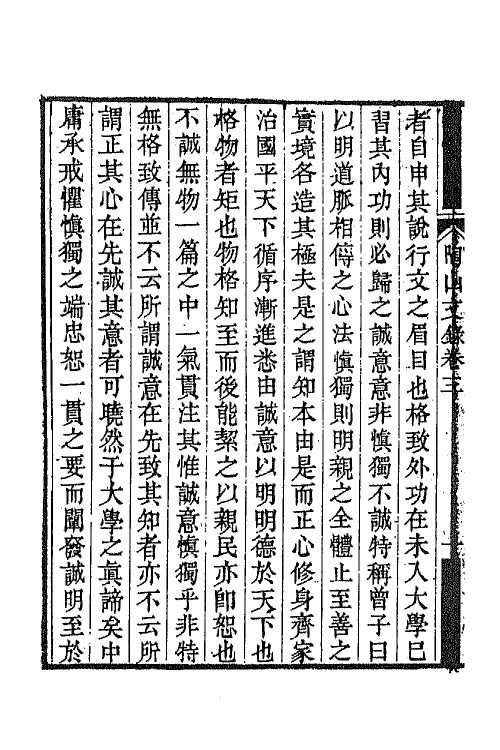 者自申其說行文之眉目也格致外功在未入大學巳
習其內功則必歸之誠意意非愼獨不誠特稱曾子曰
以明道脈相傳之心法愼獨則明親之全體止至善之
實境各造其極夫是之謂知本由是而正心修身齊家
治國平天下循序漸進悉由誠意以明明德於天下也
格物者矩也物格知至而後能絜之以親民亦卽恕也
不誠無物一篇之中一氣貫注其惟誠意愼獨乎非特
無格致傳並不云所謂誠意在先致其知者亦不云所
謂正其心在先誠其意者可曉然于大學之眞諦矣中
庸承戒懼愼獨之端忠恕一貫之要而闡發誠明至於
陶山文錄卷三